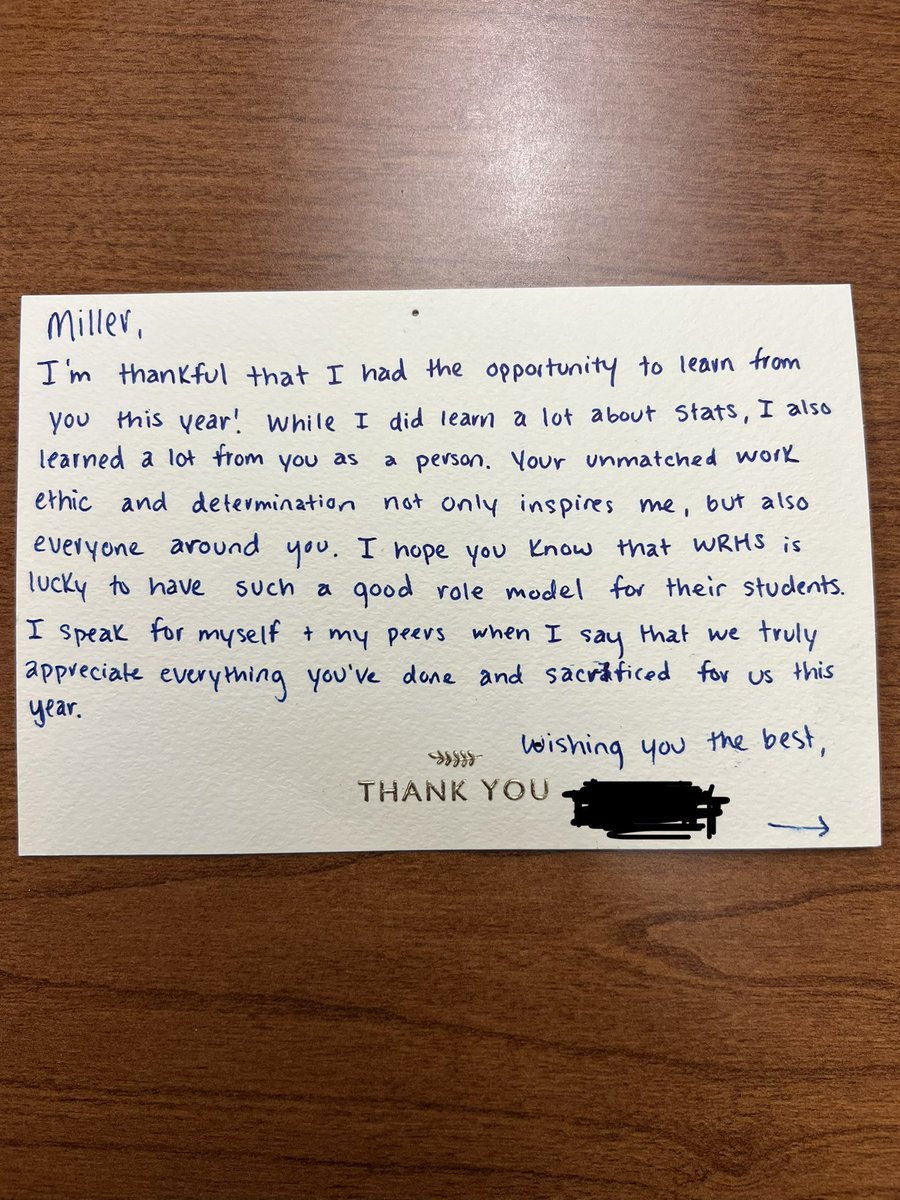 Miller,
I'm thankful that I had the opportunity to learn from
you this year! While I did learn a lot about stats, I also
learned a lot from you as a person. Your unmatched work
ethic and determination not only inspires me, but also
everyone around you. I hope you know that WRHS is
lucky to have such a good role model for their students.
I speak for myself + my peers when I say that we truly
appreciate everything you've done and sacrificed for us this
year.
Wishing you the best,
THANK YOU
→